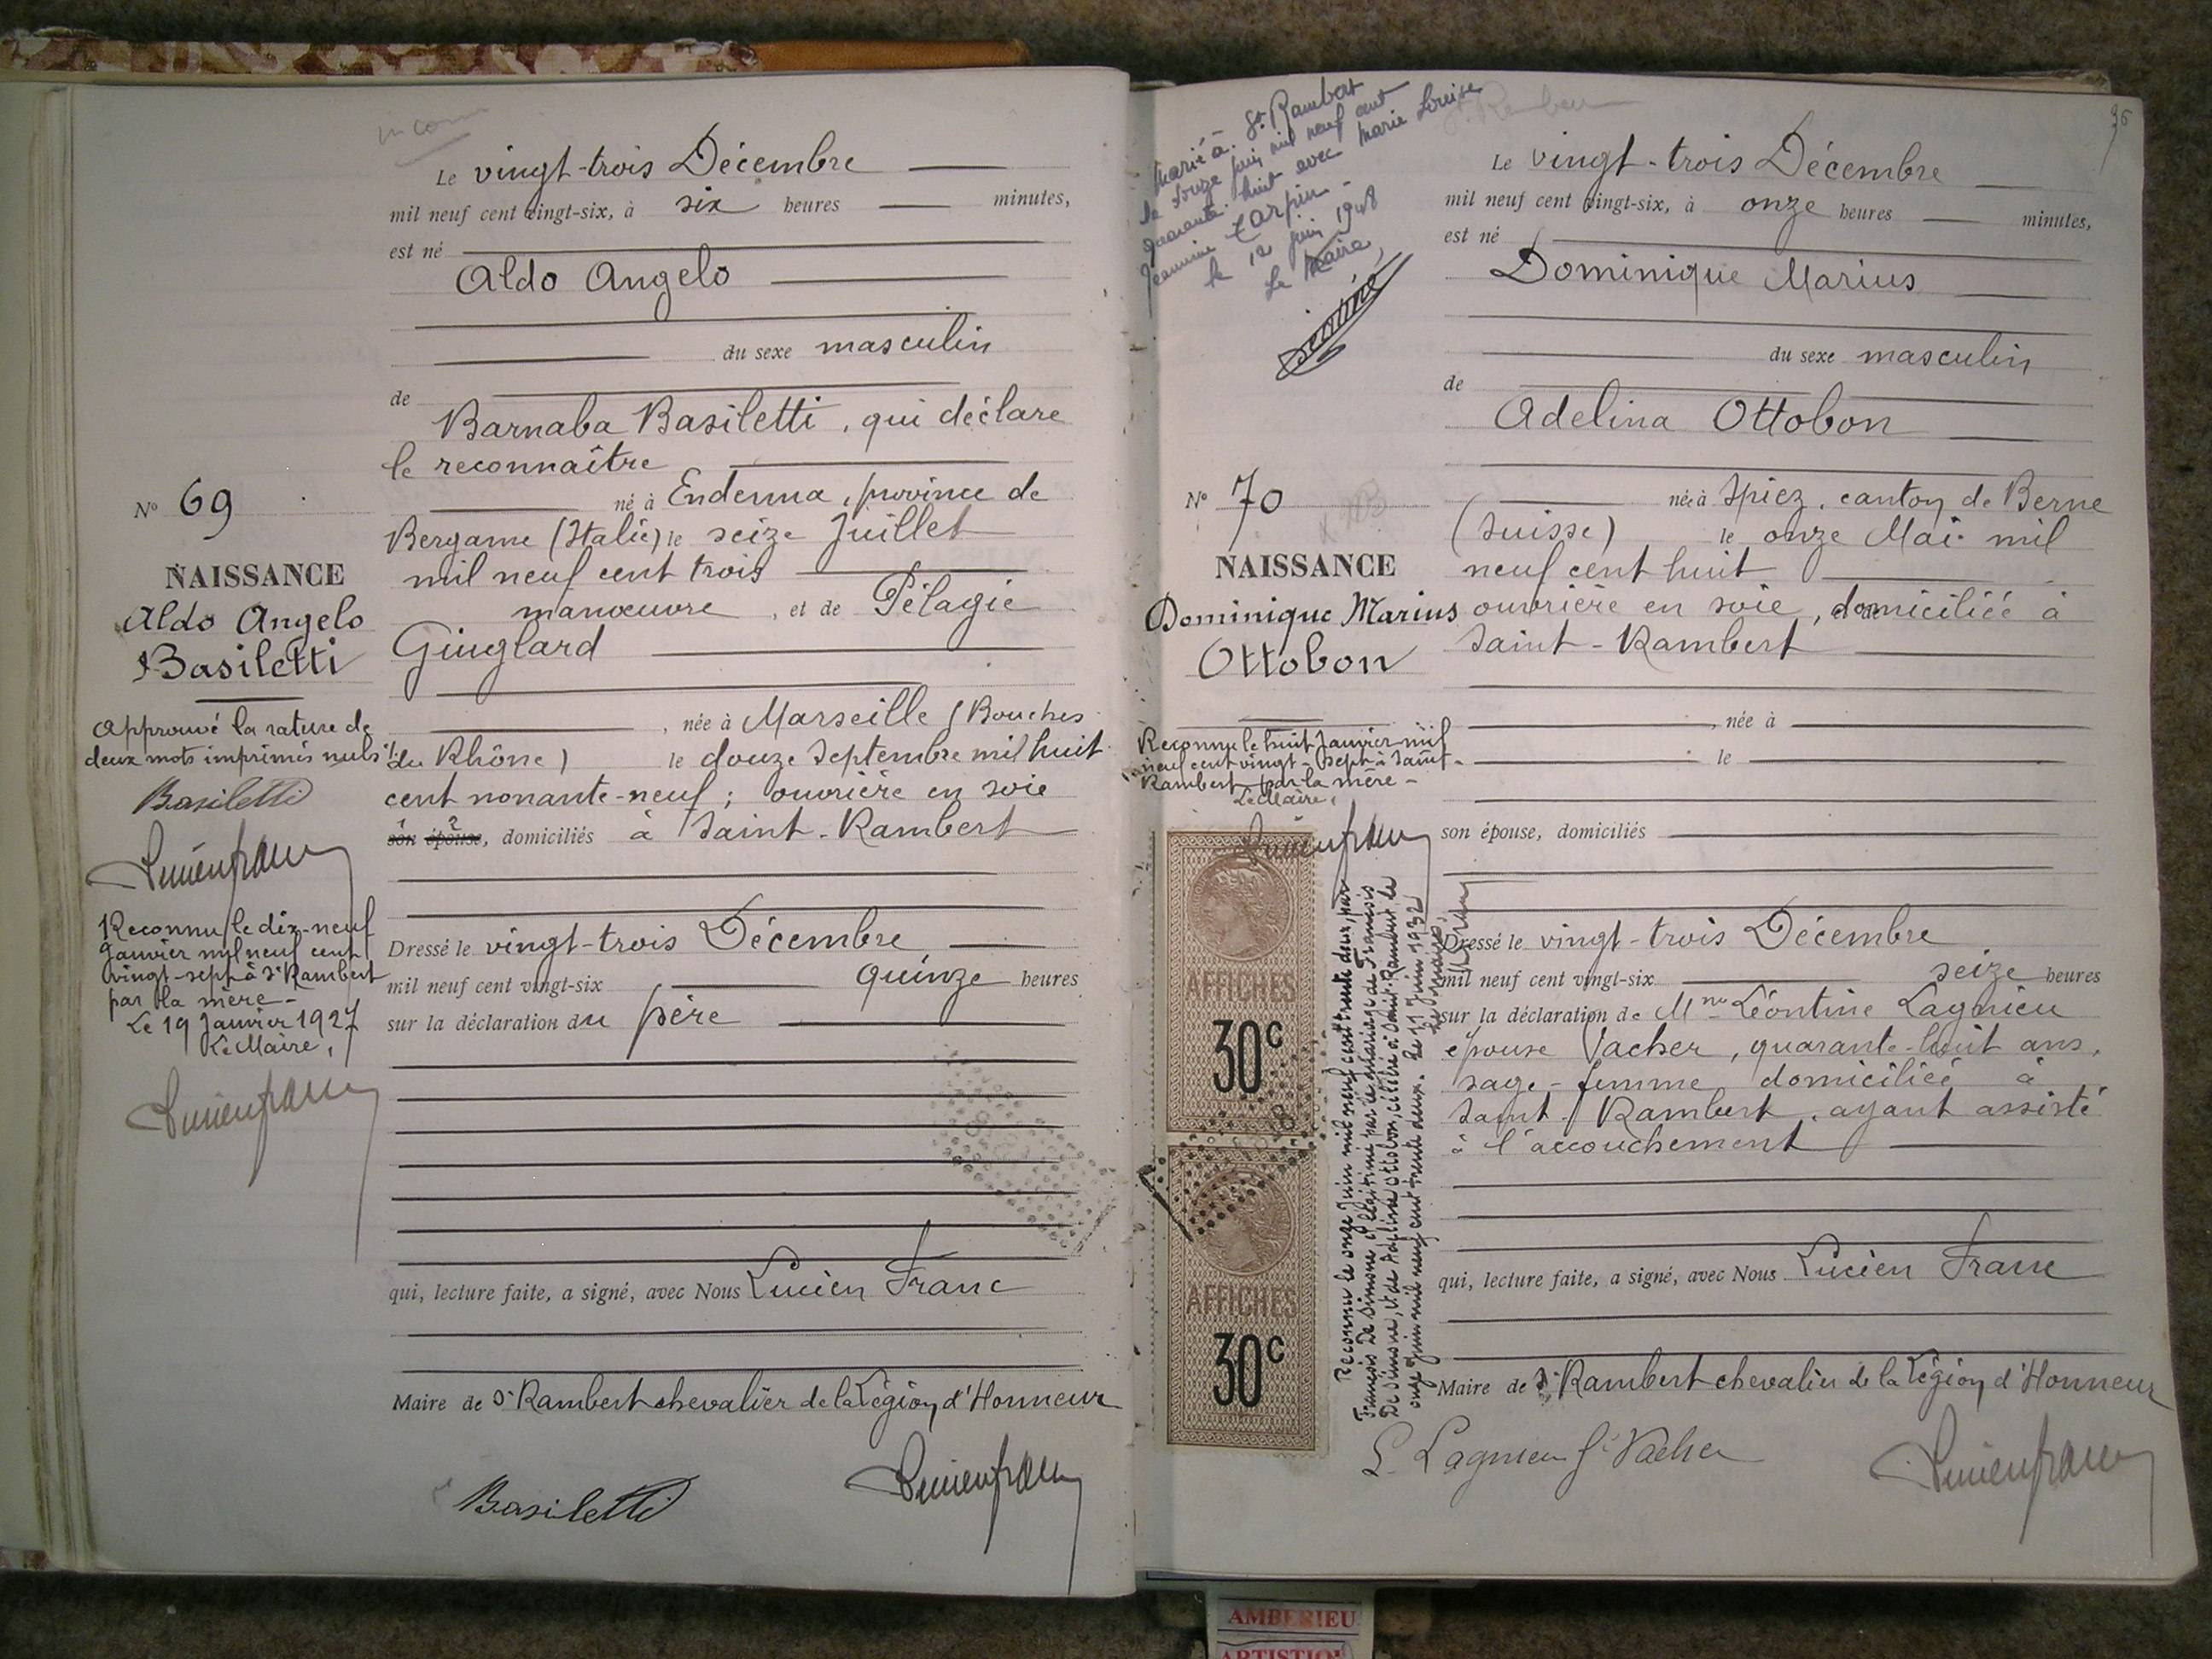 Le vingt-trois Décembre
mil neuf cent vingt-six, à six heures minutes,
est né
Aldo Angelo
du sexe masculin
de
Barnaba Basiletti, qui déclare
le reconnaître
né à Endenna, province de
Bergame (Italie) le seize Juillet
mil neuf cent trois
manœuvre, et de Pélagie
Guiglard
, née à Marseille (Bouches
du Rhône) le douze Septembre mil huit
cent nonante-neuf; ouvrière en soie
son épouse, domiciliés à Saint-Rambert
Dressé le vingt-trois Décembre
mil neuf cent vingt-six quinze heures
sur la déclaration du père
qui, lecture faite, a signé, avec Nous Lucien Franc
Maire de St Rambert chevalier de la Légion d'Honneur
Basiletti
N° 69
NAISSANCE
Aldo Angelo
Basiletti
Approuvé la rature de
deux mots imprimés nuls
Basiletti
Lucien Franc
Reconnu le dix-neuf
Janvier mil neuf cent
vingt-sept à St Rambert
par la mère-
Le 19 Janvier 1927
Le Maire,
Lucien Franc
Lucien Franc
36
Marié à St Rambert
le douze juin mil neuf cent
quarante-huit avec Marie Louise
Jeannine Tarpin-
le 12 juin 1948
Le Maire,
Le vingt-trois Décembre
mil neuf cent vingt-six, à onze heures minutes,
est né
Dominique Marius
du sexe masculin
de
Adelina Ottobon
née à Spiez, canton de Berne
(Suisse) le onze Mai mil
neuf cent huit
ouvrière en soie, domiciliée à
Saint-Rambert
, née à
le
son épouse, domiciliés
Dressé le vingt-trois Décembre
mil neuf cent vingt-six seize heures
sur la déclaration de Mme Léontine Lagnieu
épouse Vacher, quarante-huit ans,
sage-femme domiciliée à
Saint-Rambert, ayant assisté
à l'accouchement
qui, lecture faite, a signé, avec Nous Lucien Franc
Maire de St Rambert chevalier de la Légion d'Honneur
L. Lagnieu fe Vacher
Lucien Franc
N° 70
NAISSANCE
Dominique Marius
Ottobon
Reconnu le huit Janvier mil
neuf cent vingt-sept à Saint-
Rambert par la mère-
Le Maire,
Lucien Franc
AFFICHES
30c
AFFICHES
30c
Reconnu le onze Juin mil neuf cent trente deux, par
François De Simone et légitimé par le mariage de François
De Simone, et de Adelina Ottobon, célébré à Saint-Rambert le
onze Juin mil neuf cent trente deux. Le 11 Juin 1932
AMBERIEU